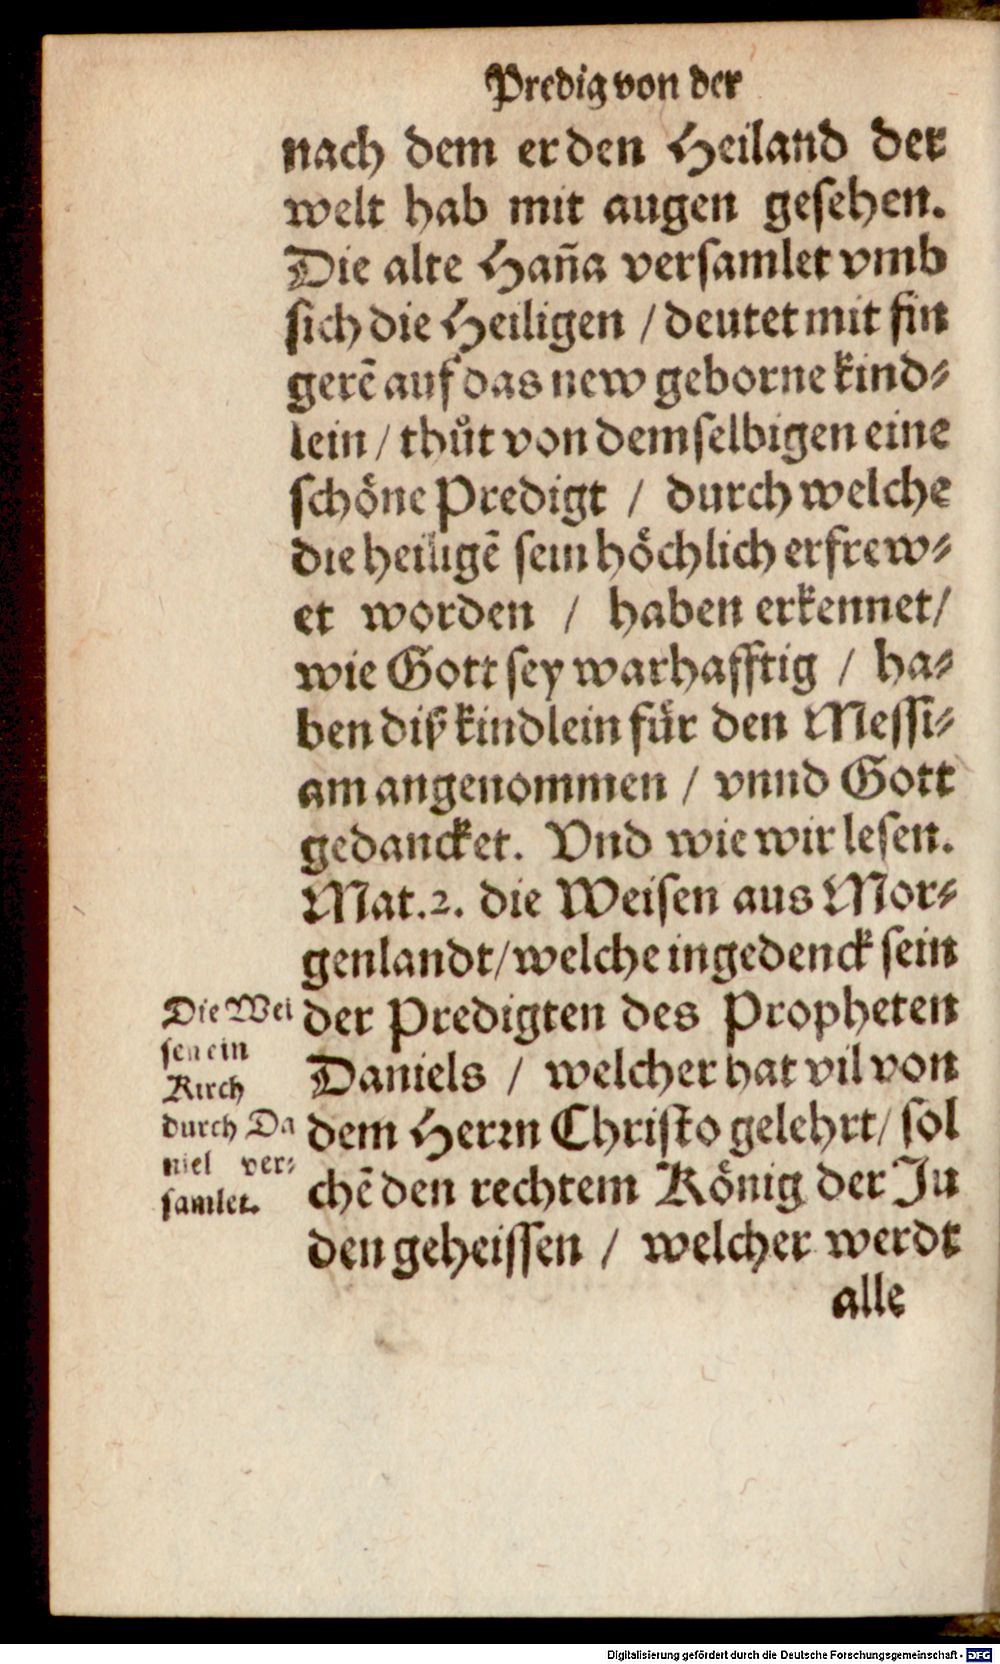 Predig von der
nach dem er den Heiland der
welt hab mit augen gesehen.
Die alte Haña versamlet vmb
sich die Heiligen / deutet mit fin
gerẽ auf das new geborne kind⸗
lein / thůt von demselbigen eine
schöne Predigt / durch welche
die heiligẽ sein höchlich erfrew⸗
et worden / haben erkennet /
wie Gott sey warhafftig / ha⸗
ben diß kindlein für den Messi⸗
am angenommen / vnnd Gott
gedancket. Vnd wie wir lesen.
Mat.2. die Weisen aus Mor⸗
genlandt / welche ingedenck sein
der Predigten des Propheten
Daniels / welcher hat vil von
dem Herrn Christo gelehrt / sol
chẽ den rechtem König der Ju
den geheissen / welcher werdt
alle
Die Wei
sen ein
Kirch
durch Da
niel ver⸗
samlet.
Digitalisierung gefördert durch die Deutsche Forschungsgemeinschaft - DFG